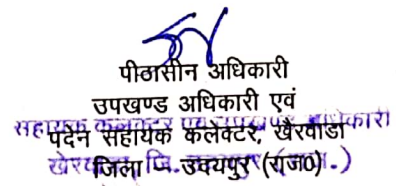 पीठासीन अधिकारी
उपखण्ड अधिकारी एवं
पदेन सहायक कलेक्टर, खैरवाडा
जिला – उदयपुर (राज0)